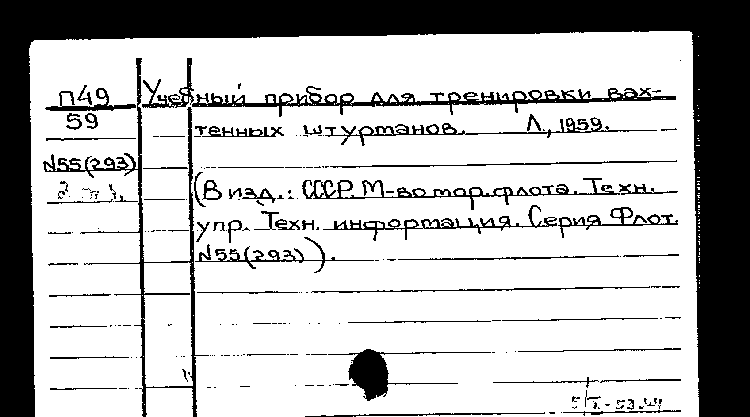 П49 Учебный прибор для тренировки вах-
59 тенных штурманов. Л., 1959.
N55(293)
(В изд.: СССР. М-во мор. флота. Техн.
упр. Техн. информация. Серия Флот.
N55(293)).